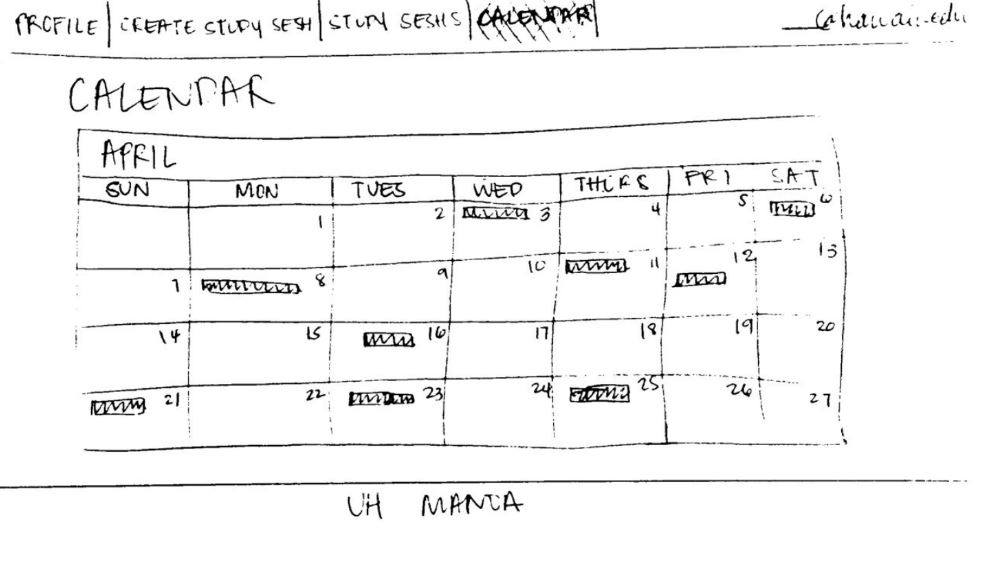 PROFILE | CREATE STUDY SESH | STUDY SESHS | CALENDAR
CALENDAR
APRIL
SUN MON TUES WED THURS FRI SAT
1 2 3 4 5 6
7 8 9 10 11 12 13
14 15 16 17 18 19 20
21 22 23 24 25 26 27
UH MANOA